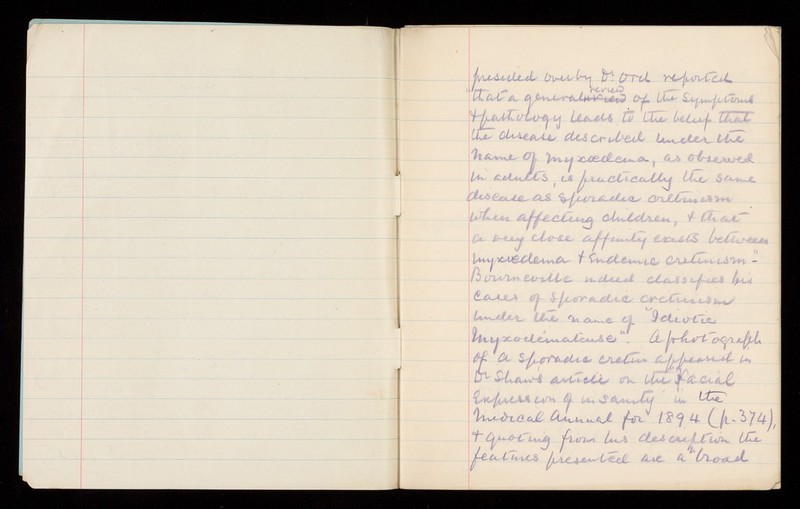 presided over by Dr. Ord reported
"that a general review of the symptoms
& pathology leads to the belief that
the disease described under the
name of myxœdema, as observed
in adults, is practically the same
disease as sporadic cretinism
when affecting children, & that
a very close affinity exists between
myxœdema & Endemic cretinism"-
Bourneville indeed classifies his
cases of sporadic cretinism
under the name of "Idiotie
Myxœdémateuse". A photograph
of a sporadic cretin appeared in
Dr Shaw's article on the "Facial
Expression of insanity" in the
Medical Annual for 1894 (p. 374),
& quoting from his description the
features presented are a "broad